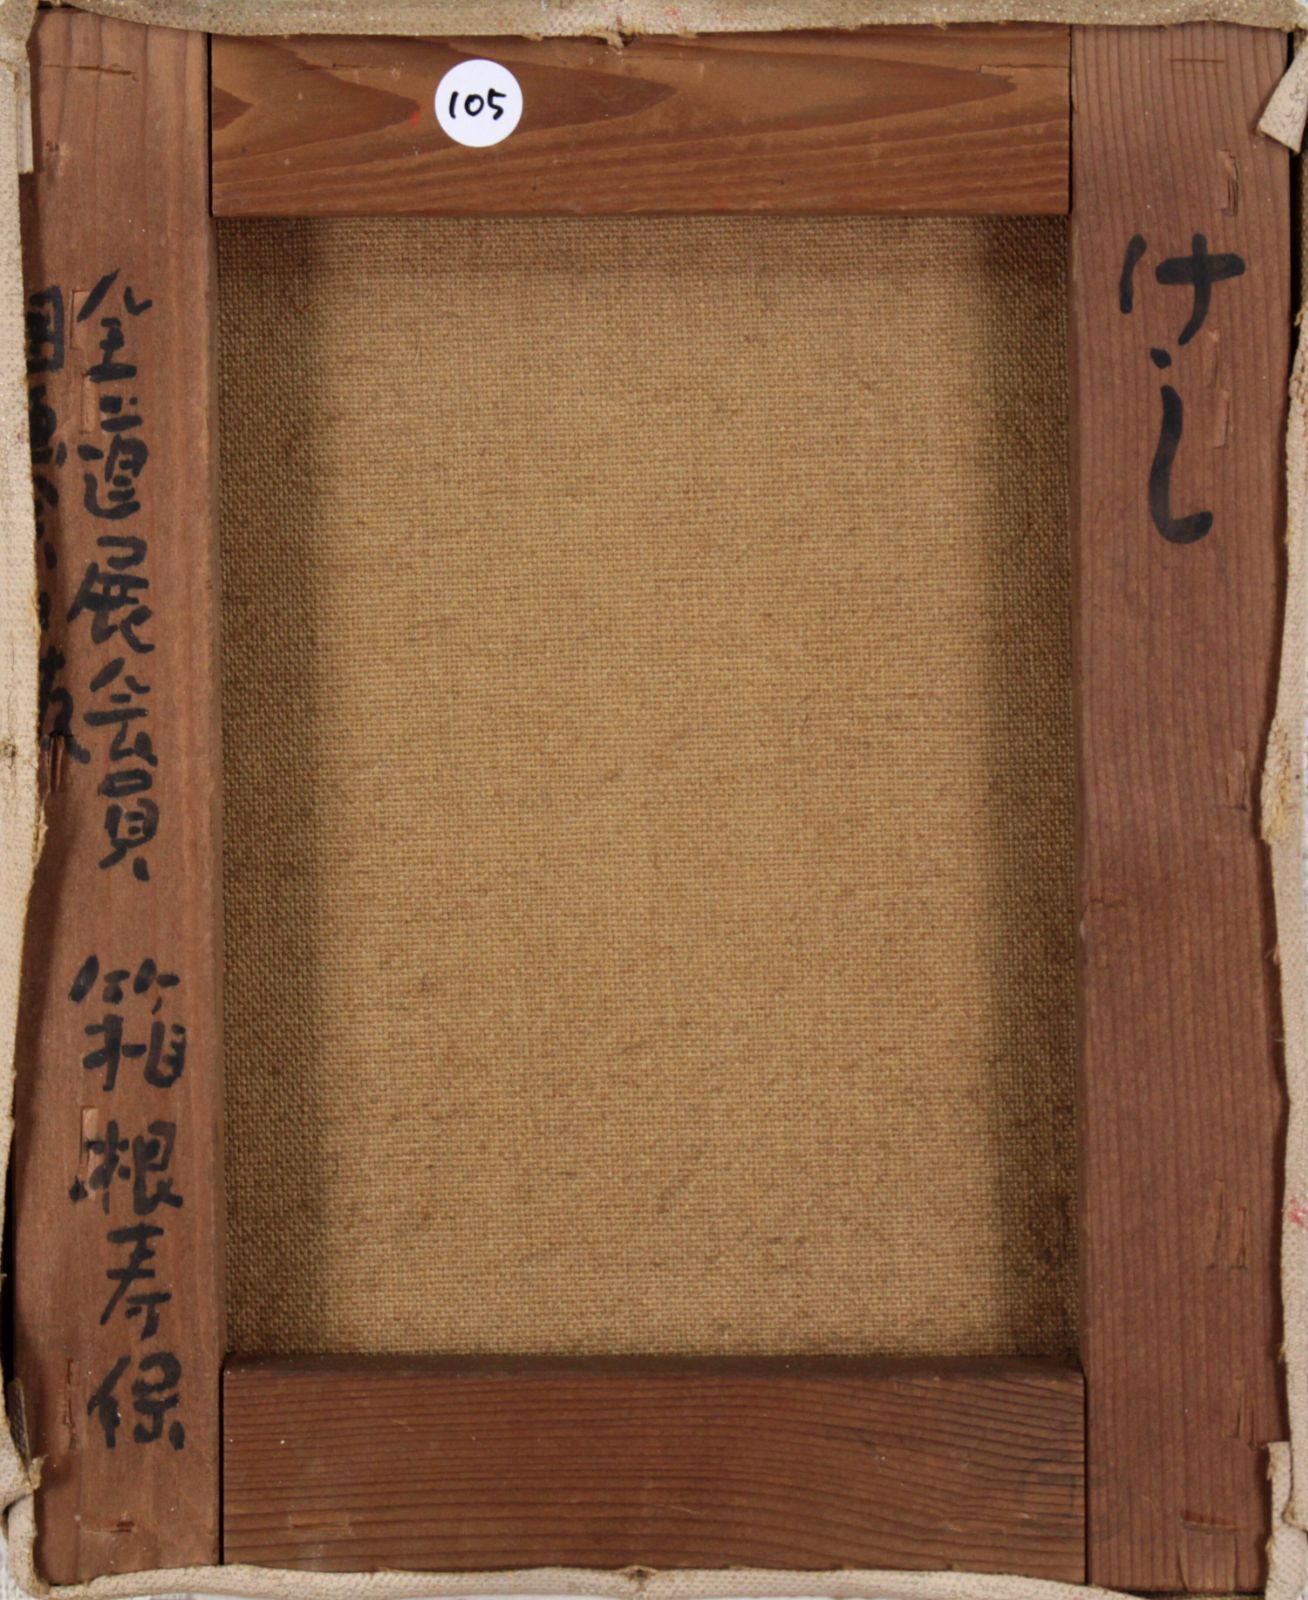 105
けし
全道展会員 箱根寿保